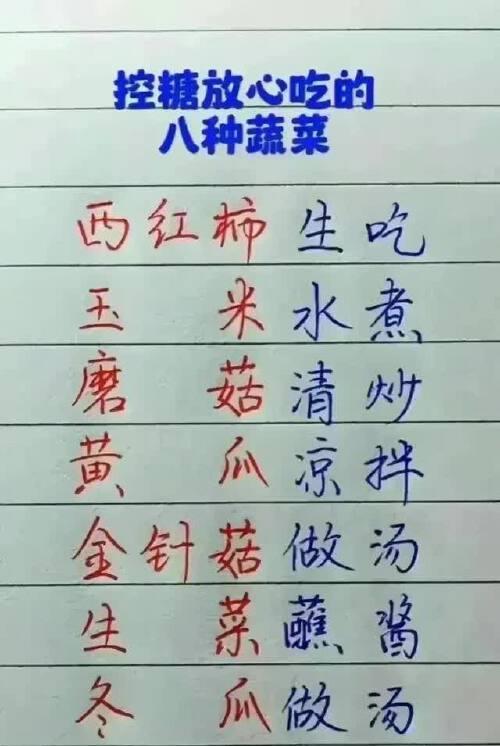 控糖放心吃的
八种蔬菜
西红柿生吃
玉米水煮
磨菇清炒
黄瓜凉拌
金针菇做汤
生菜蘸酱
冬瓜做汤